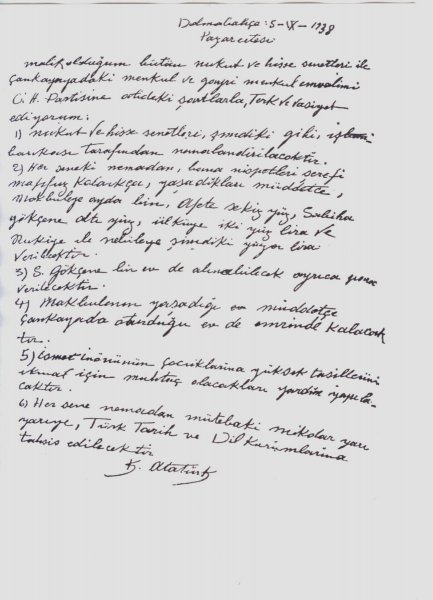 Dolmabahçe: 5-IX-1938
Pazartesi
malik olduğum bütün nukut ve hisse senetleri ile
Çankayadaki menkul ve gayri menkul emvalimi
C.H. Partisine atideki şartlarla, Terk ve Vasiyet
ediyorum:
1) nukut ve hisse senetleri, şimdiki gibi, iş
bankası tarafından nemalandırılacaktır.
2) Her seneki nemadan, bana nispetleri şerefi
mahfuz kaldıkça, yaşadıkları müddetçe,
Makbuleye ayda bin, Afete sekiz yüz, Sabiha
Gökçene altı yüz, Ülküye iki yüz lira ve
Rukiye ile Nebileye şimdiki yüzer lira
verilecektir.
3) S. Gökçene bir ev de alınabilecek ayrıca para
verilecektir.
4) Makbulenin yaşadığı müddetçe
Çankayada oturduğu ev de emrinde kalacak
tır.
5) ismet inönünün çocuklarına yüksek tahsillerini
ikmal için muhtaç olacakları yardım yapıla-
caktır.
6) Her sene nemadan mütebaki miktar yarı
yarıya, Türk Tarih ve Dil Kurumlarına
tahsis edilecektir
K. Atatürk